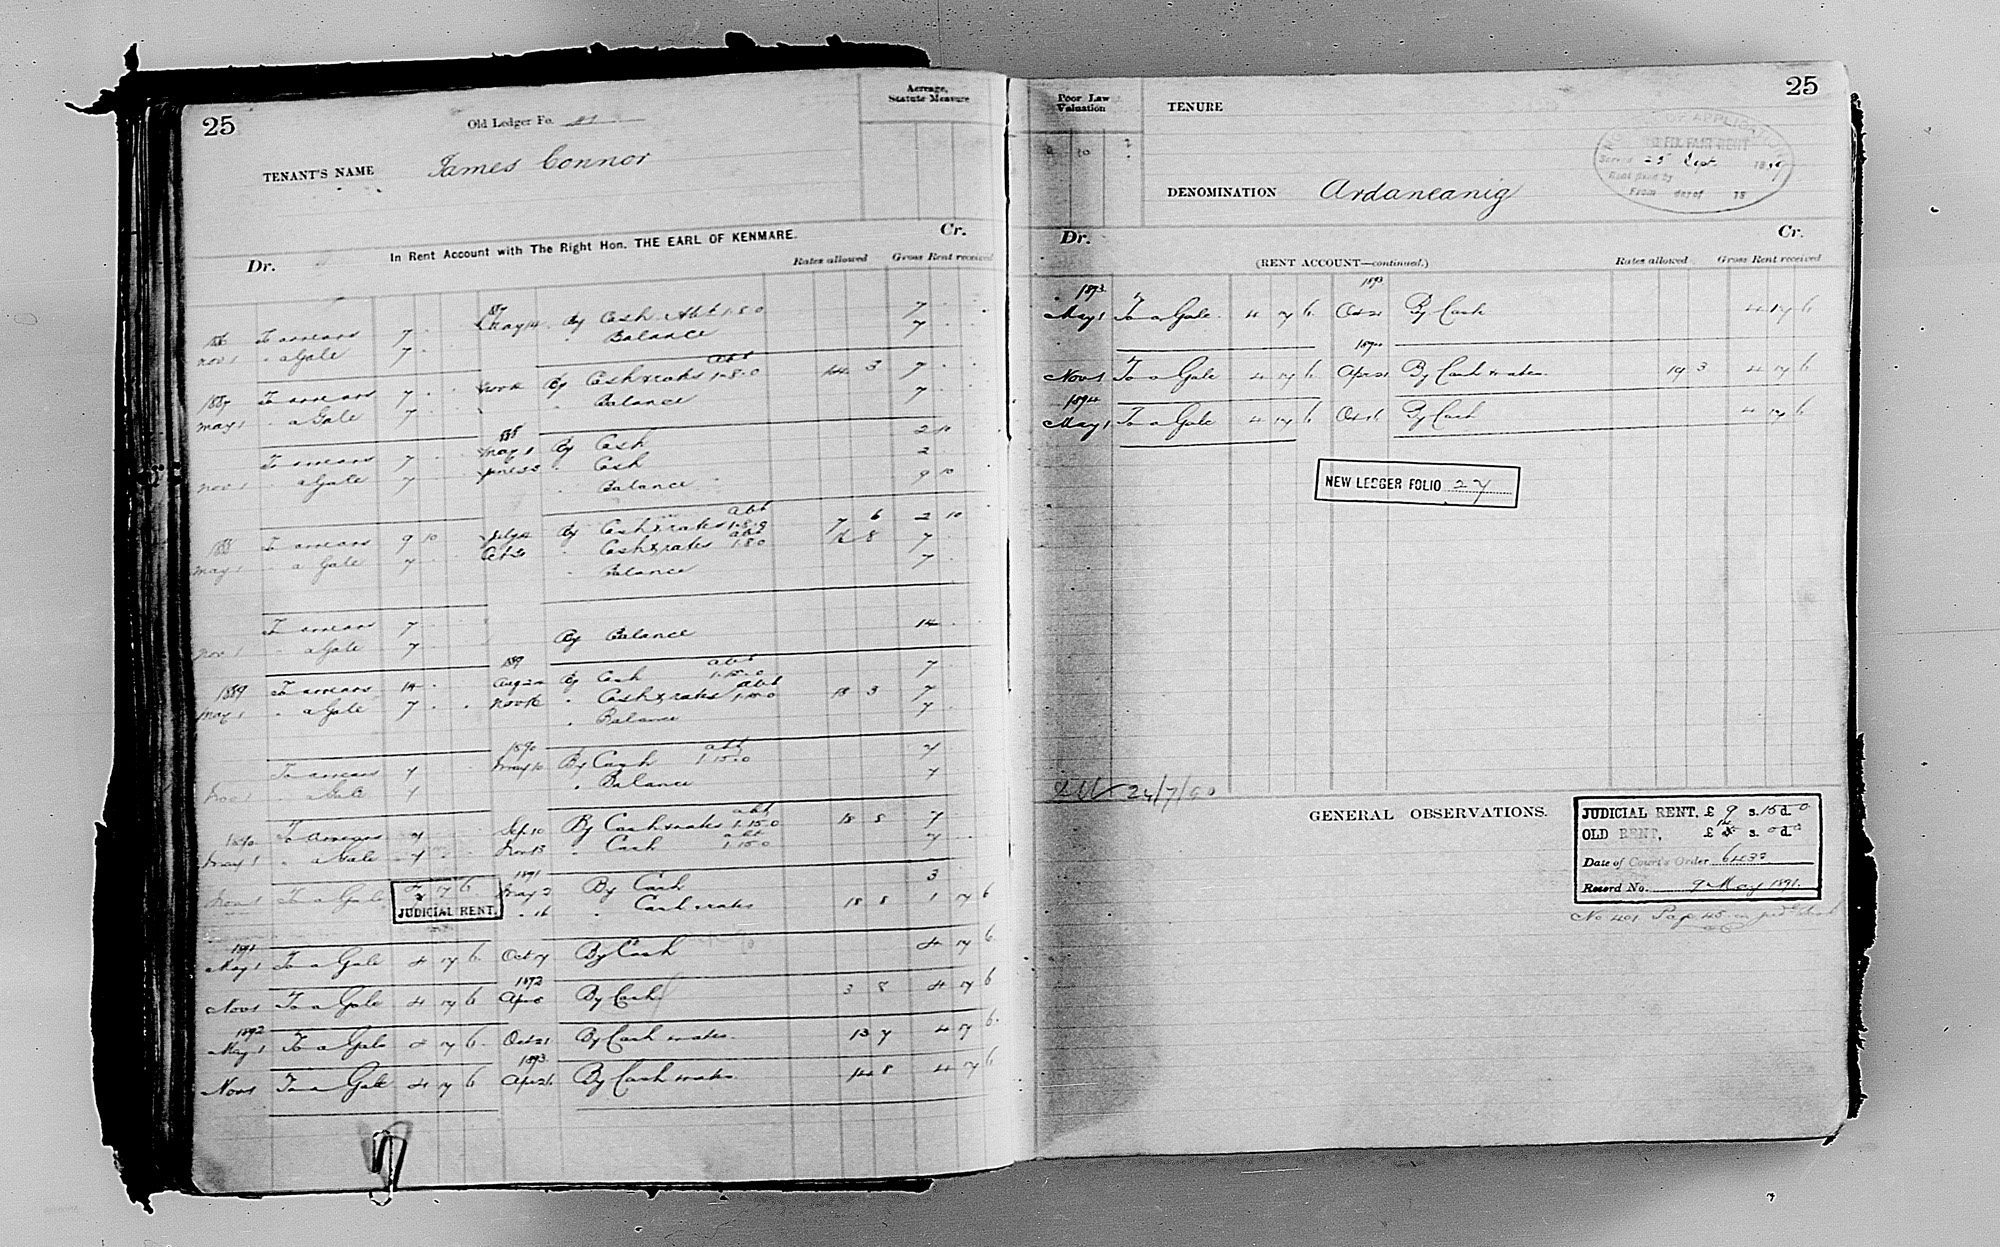 25
Old Ledger Fo.
Acreage,
Statute Measure
TENANT'S NAME James Connor
In Rent Account with The Right Hon. THE EARL OF KENMARE.
Dr. Cr.
Rates allowed Gross Rent received
1886 To arrears 7 . . 1887 May 14 By Cash Abt 1.8.0 7 . .
Nov 1 " a Gale 7 . . " Balance 7 . .
1887 To arrears 7 . . By Cash & rates abt 1.8.0 14 3 7 . .
May 1 " a Gale 7 . . " Balance 7 . .
To arrears 7 . . 1888 May 1 By Cash 2 10
Nov 1 " a Gale 7 . . June 23 " Cash 2
" Balance 9 10
1888 To arrears 9 10 July By Cash & rates abt 7 6 2 10
May 1 " a Gale 7 . . Oct " Cash & rates abt 1.8.0 8 7 .
" Balance 7 .
To arrears 7 . . By Balance 14 .
Nov 1 " a Gale 7 . .
1889 To arrears 14 . . 1889 Aug By Cash abt 1.15.0 7
May 1 " a Gale 7 . . Nov " Cash & rates abt 1.15.0 18 3 7
" Balance 7
To arrears 7 1890 May 10 By Cash abt 1.15.0 7
Nov 1 " a Gale 7 " Balance 7
1890 To arrears 7 Sep 10 By Cash & rates abt 1.15.0 18 8 7
May 1 " a Gale 7 Nov 13 " Cash abt 1.15.0 7
Nov 1 To a Gale 4 17 6 1891 May 2 By Cash 3
JUDICIAL RENT. " 16 " Cash & rates 18 8 1 17 6
1891
May 1 To a Gale 4 17 6 Oct 17 By Cash 4 17 6
Nov 1 To a Gale 4 17 6 1892 Apr 8 By Cash 3 8 4 17 6
1892
May 1 To a Gale 4 17 6 Oct 21 By Cash & rates. 13 7 4 17 6
Nov 1 To a Gale 4 17 6 1893 Apr 26 By Cash & rates. 14 8 4 17 6
25
Poor Law
Valuation
TENURE
NOTICE OF APPLICATION
TO FIX FAIR RENT
Served 25 Sept 18
Rent fixed by
From day of 18
DENOMINATION Ardaneanig
Dr. Cr.
(RENT ACCOUNT—continued.)
Rates allowed Gross Rent received
1893 1893
May 1 To a Gale. 4 17 6 Oct 21 By Cash 4 17 6
Nov 1 To a Gale 4 17 6 Apr 21 By Cash & rates. 19 3 4 17 6
1894
May 1 To a Gale 4 17 6 Oct 16 By Cash 4 17 6
NEW LEDGER FOLIO 27
24/7/
GENERAL OBSERVATIONS.
JUDICIAL RENT, £ 9 s. 15 d. 0
OLD RENT, £ s. 0 d. 0
Date of Court's Order
Record No. 9 May 1891.
No 401 Page 45